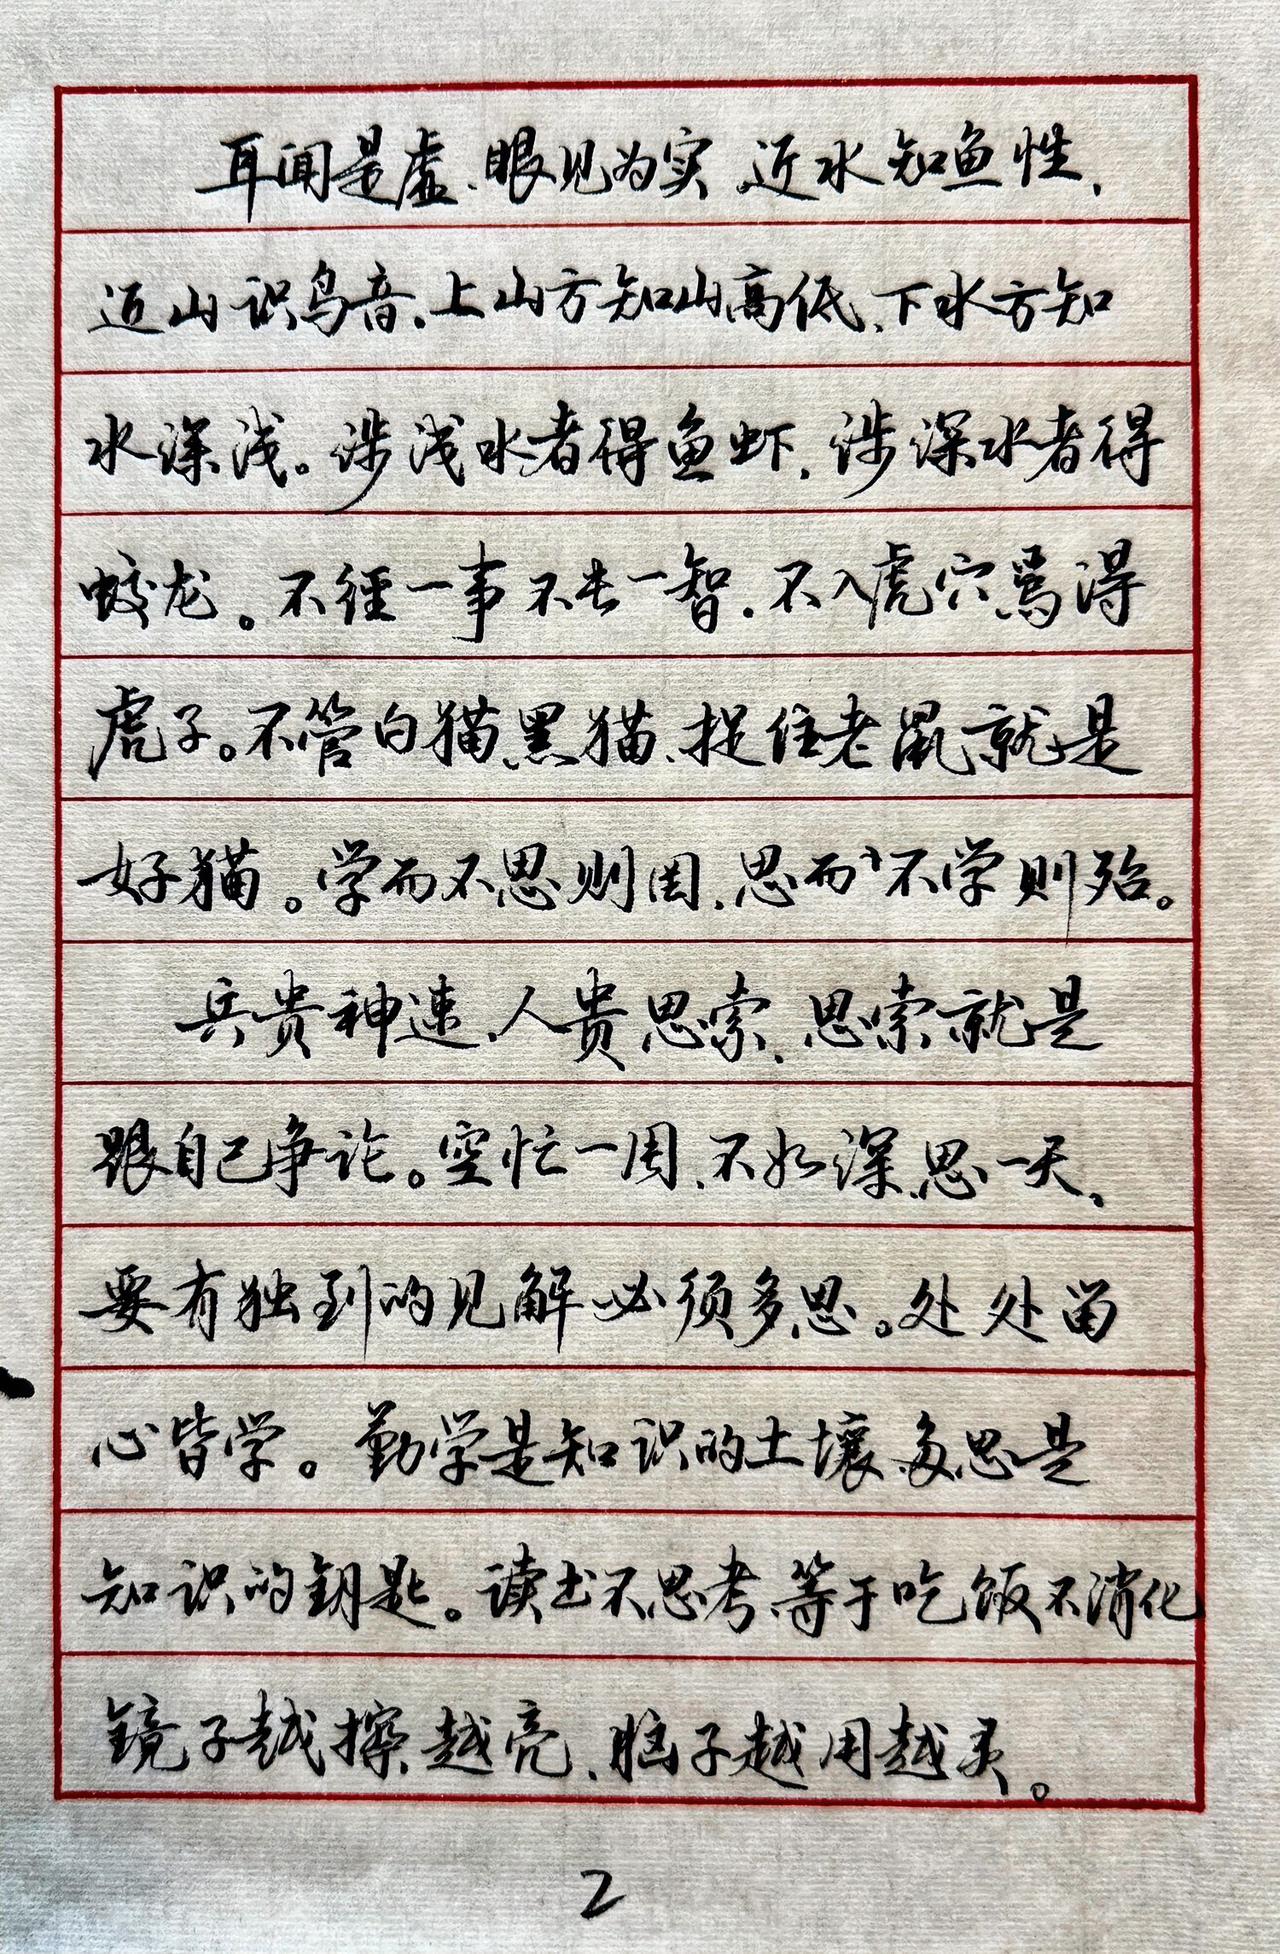 耳闻是虚、眼见为实、近水知鱼性、
近山识鸟音、上山方知山高低、下水方知
水深浅。涉浅水者得鱼虾、涉深水者得
蛟龙。不经一事不长一智、不入虎穴焉得
虎子。不管白猫黑猫、捉住老鼠就是
好猫。学而不思则罔、思而不学则殆。
兵贵神速、人贵思索、思索就是
跟自己争论。空忙一周、不如深思一天、
要有独到的见解必须多思。处处留
心皆学。勤学是知识的土壤、多思是
知识的钥匙。读书不思考、等于吃饭不消化
镜子越擦越亮、脑子越用越灵。
2